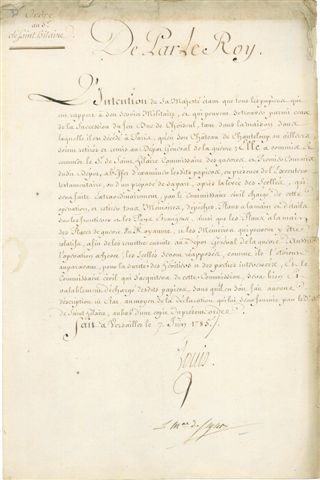 Ordre
au Sr.
de Saint Hilaire
De Par Le Roy.
L'Intention de Sa Majesté étant que tous les papiers qui
ont rapport à son service Militaire, et qui peuvent se trouver parmi ceux
de la Succession du feu Duc de Choiseul, tant dans la maison dans
laquelle il est décédé à Paris, qu'en son Château de Chanteloup ou ailleurs,
soient retirés et remis au Dépôt Général de la guerre; Elle a commis
le S. de Saint hilaire Commissaire des guerres et Premier Commis
du dit Dépôt, à l'effet d'examiner les dits papiers, en présence de l'Exécuteur
testamentaire, ou d'un préposé de sa part, après la levée des Scellés, qui
sera faite par le Commissaire civil chargé de cette
opération, et retirer tous Mémoires, dépêches, Plans à la main et détails
sur les frontières et les Pays Etrangers, ainsi que les Plans à la main
des Places de guerre du Royaume, et les Mémoires qui peuvent y être
relatifs, afin de les remettre ensuite au Dépôt Général de la guerre.
l'opération achevée les Scellés seront réapposés, comme ils l'étoient
auparavant, pour la sureté des héritiers et des parties intéressées, et le
Commissaire civil qui s'acquittera de cette Commission, sera bien et
valablement déchargé des dits papiers, sans qu'il en soit fait aucune
description ni état, au moyen de la déclaration qui lui sera fournie par le S.
de Saint hilaire, au bas d'une copie du présent ordre
Fait à Versailles le 7 Juin 1785.
Louis
Le Mal de Ségur